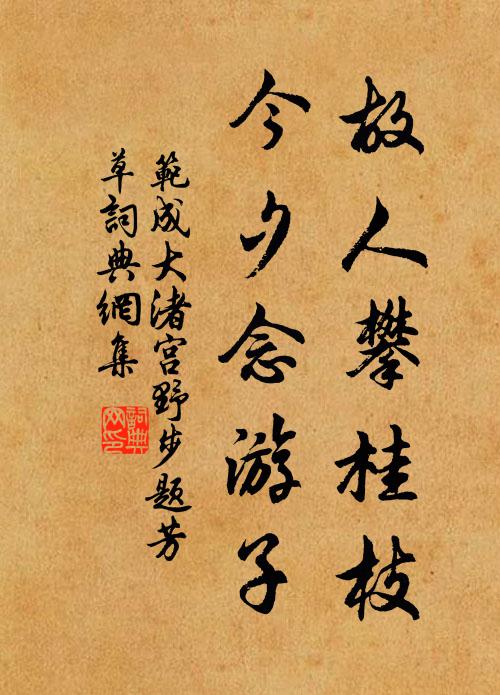 故人攀桂枝
今夕念游子
範成大渚宮野步題芳
草詞典網集
詞典
网印